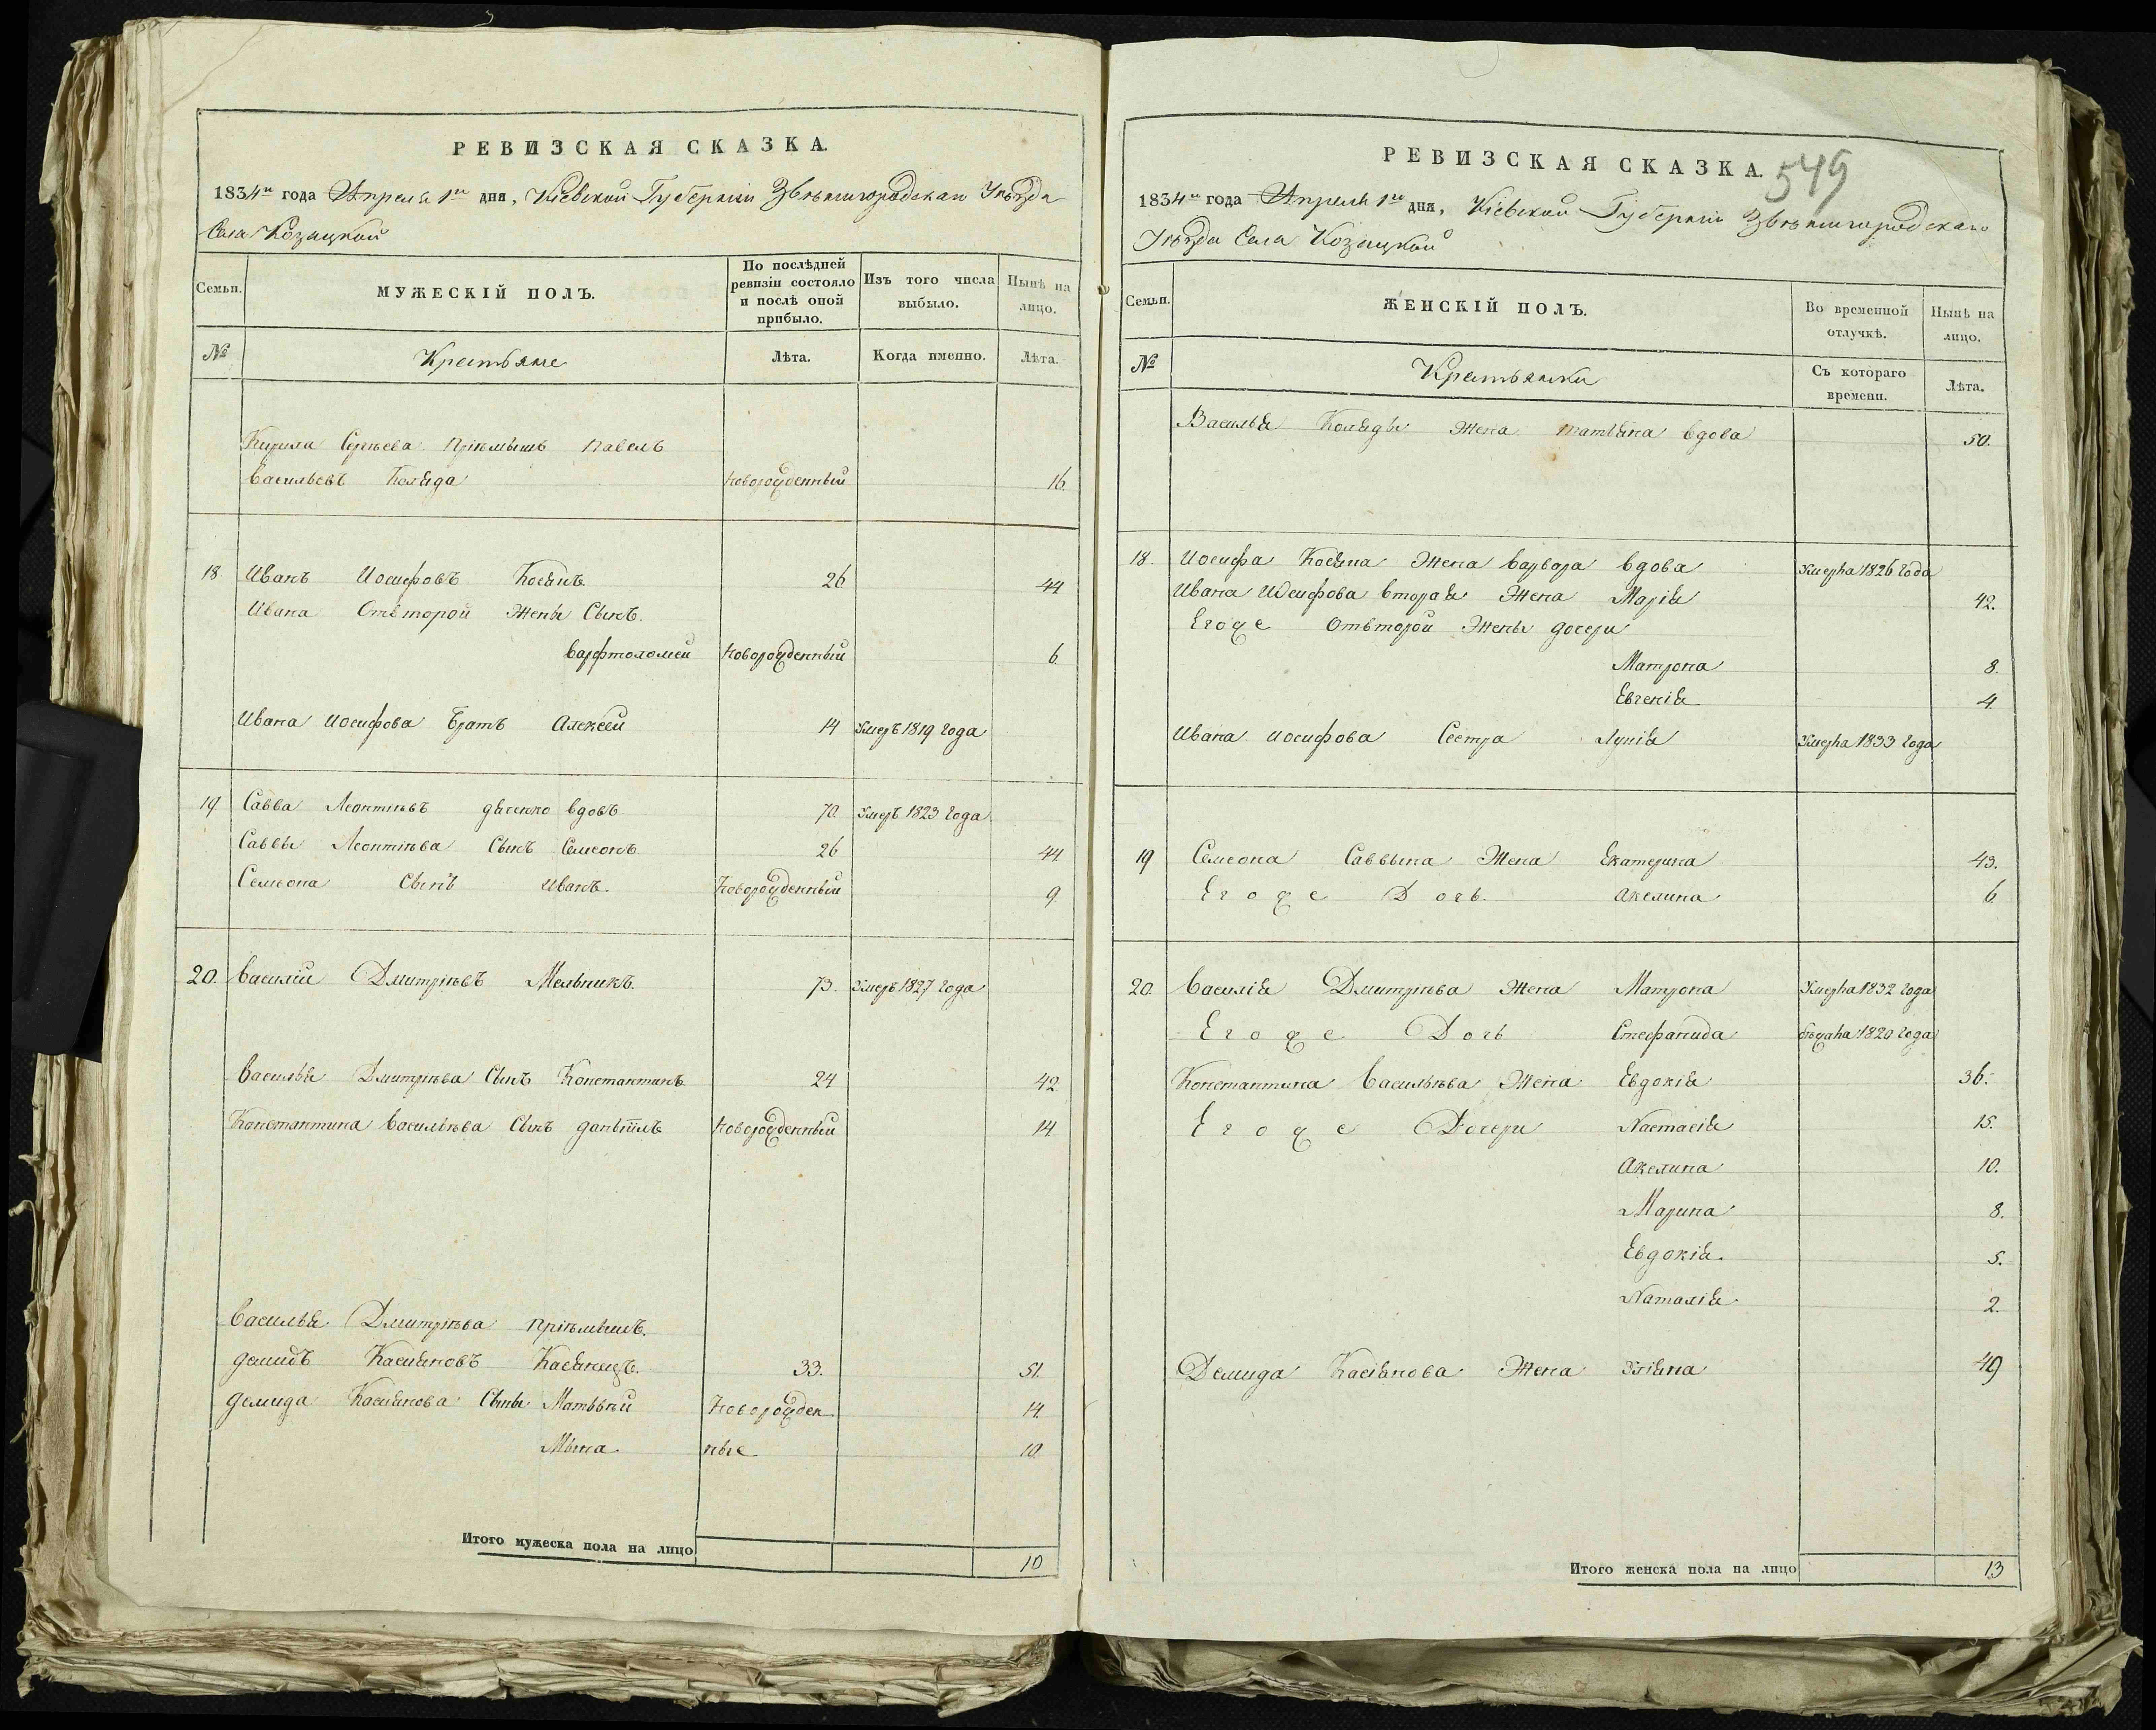 РЕВИЗСКАЯ СКАЗКА.
1834го года Апреля 1го дня, Кіевской Губерніи Звѣнигородскаго Уѣзда
Села Козацкой
Семьи.
МУЖЕСКІЙ ПОЛЪ.
По послѣдней ревизіи состояло и послѣ оной прибыло.
Изъ того числа выбыло.
Нынѣ на лицо.
№
Крестьяне
Лѣта.
Когда именно.
Лѣта.
Кирила Сергѣева пріемышъ павелъ
васильевъ Коляда новорожденный 16.
18. Иванъ Иосифовъ Косянъ 26 44
Ивана Отвторой жены Сынъ.
варфтоломей новорожденный 6.
Ивана иосифова братъ Алексей 14 умеръ 1819 года
19 Савва Леонтиевъ дяченко вдовъ 70. умеръ 1823 года
Саввы Леонтиева Сынъ Семеонъ 26 44
Семеона Сынъ иванъ. новорожденный 9
20. василій Дмитриевъ Мельникъ. 73. умеръ 1827 года
василья Дмитриева Сынъ Константинъ 24 42
Константина васильева Сынъ даніилъ новорожденный 14
василья Дмитриева пріемышъ.
демидъ Касияновъ Касянецъ. 33. 51.
демида Касиянова Сыны Матвѣй новорожден 14.
Мына ные 10
Итого мужеска пола на лицо 10
549
РЕВИЗСКАЯ СКАЗКА.
1834го года Апреля 1го дня, Кіевской Губерніи Звѣнигородскаго
Уѣзда Села Козацкой
Семьи.
ЖЕНСКІЙ ПОЛЪ.
Во временной отлучкѣ.
Нынѣ на лицо.
№
Крестьянки
Съ котораго времени.
Лѣта.
Василья Коляды жена татияна вдова 50.
18. Иосифа Косяна жена варвара вдова умерла 1826 года
Ивана Иосифова вторая жена Марія 42.
Егоже Отвторой жены дочери
Матрона 8.
Евгенія 4
Ивана иосифова Сестра Лукія умерла 1833 года
19 Семеона Саввына жена Екатерина 43.
Егоже Дочь. Акелина 6
20. Василія Дмитриева жена Матрона умерла 1832 года
Егоже Дочь Стефанида бѣжала 1820 года
Константина васильева жена Евдокія 36.
Егоже Дочери Настасія 15.
Акелина 10.
Марина 8.
Евдокія. 5.
Наталія 2.
Демида Касіянова жена уліяна 49
Итого женска пола на лицо 13